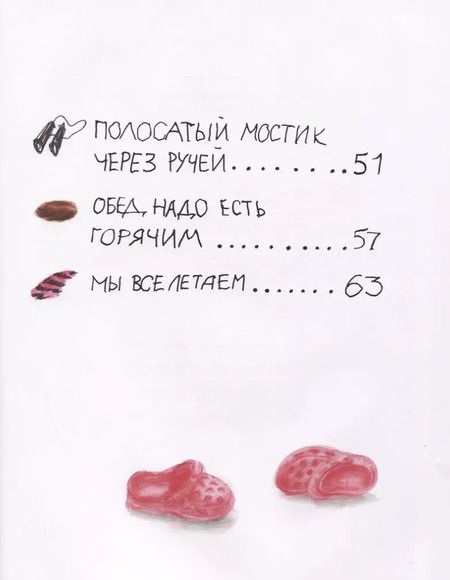 ПОЛОСАТЫЙ МОСТИК
ЧЕРЕЗ РУЧЕЙ........51
ОБЕД, НАДО ЕСТЬ
ГОРЯЧИМ ..........57
МЫ ВСЕ ЛЕТАЕМ.......63